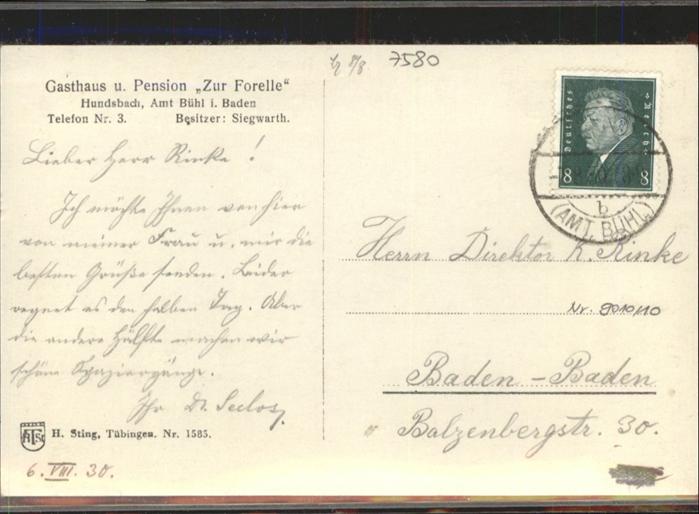 ½ 8/8
7580
Gasthaus u. Pension „Zur Forelle“
Hundsbach, Amt Bühl i. Baden
Telefon Nr. 3. Besitzer: Siegwarth.
Lieber Herr Rinke!
Ich möchte Ihnen von hier
von meiner Frau u. mir die
besten Grüße senden. Leider
regnet es den halben Tag. Aber
die andere Hälfte machen wir
schöne Spaziergänge.
Ihr Dr. Seelos
H. Sting, Tübingen, Nr. 1585.
6. VIII. 30.
Deutsches Reich
8 8
b
(AMT BÜHL)
Herrn Direktor K. Rinke
Nr. 9010/10
Baden-Baden
Balzenbergstr. 30.